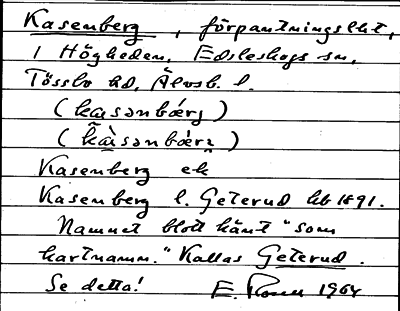 Kasenberg, förpantningslht,
i Högheden, Edsleskogs sn,
Tössbo hd, Älvsb. l.
(kasənbærj)
(kàsənbærj)
Kasenberg ek
Kasenberg l. Geterud hb 1891.
Namnet blott känt "som
kartnamn." Kallas Geterud.
Se detta! E. 1964